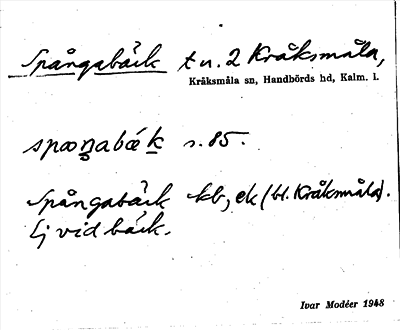 Spångabäck t u. 2 Kråksmåla,
Kråksmåla sn, Handbörds hd, Kalm. l.
s. 85.
Spångabäck kb, ek (bl. Kråksmåla).
Ej vid bäck.
Ivar Modéer 1948